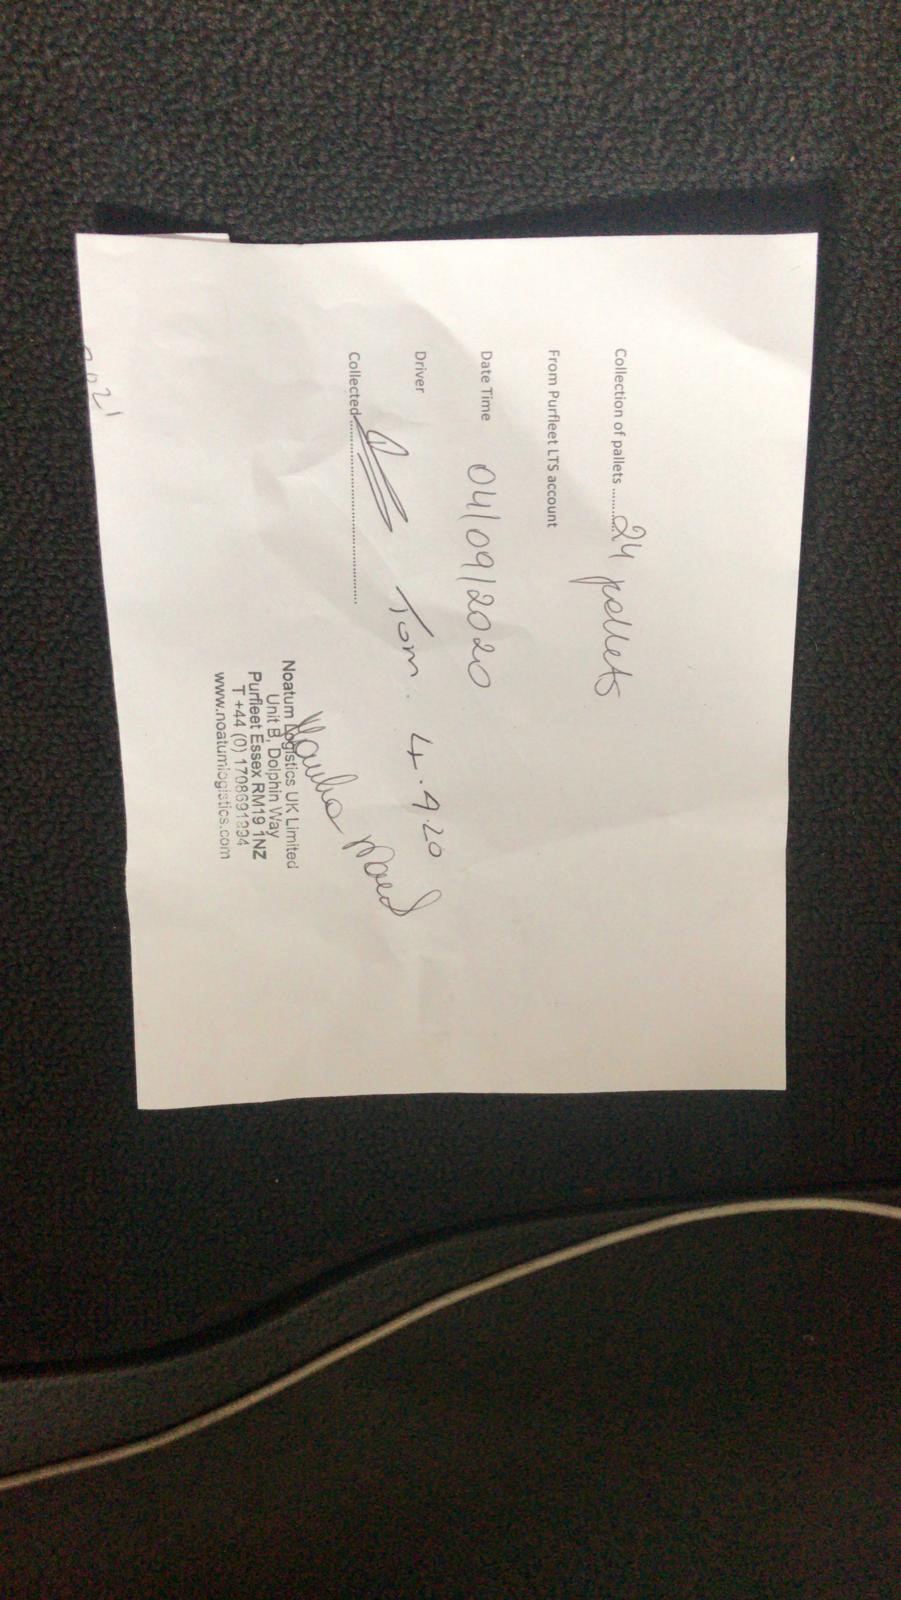 Collection of pallets ............ 24 pallets
From Purfleet LTS account
Date Time 04/09/2020
Driver Tom. 4.9.20
Collected................................
Noatum Logistics UK Limited
Unit B, Dolphin Way
Purfleet Essex RM19 1NZ
T +44 (0) 1708691394
www.noatumlogistics.com